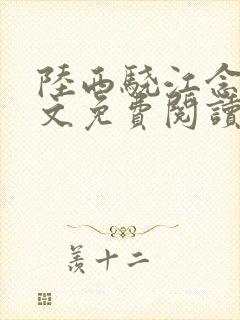 陸西驍江念
文免費閱讀
羡十二